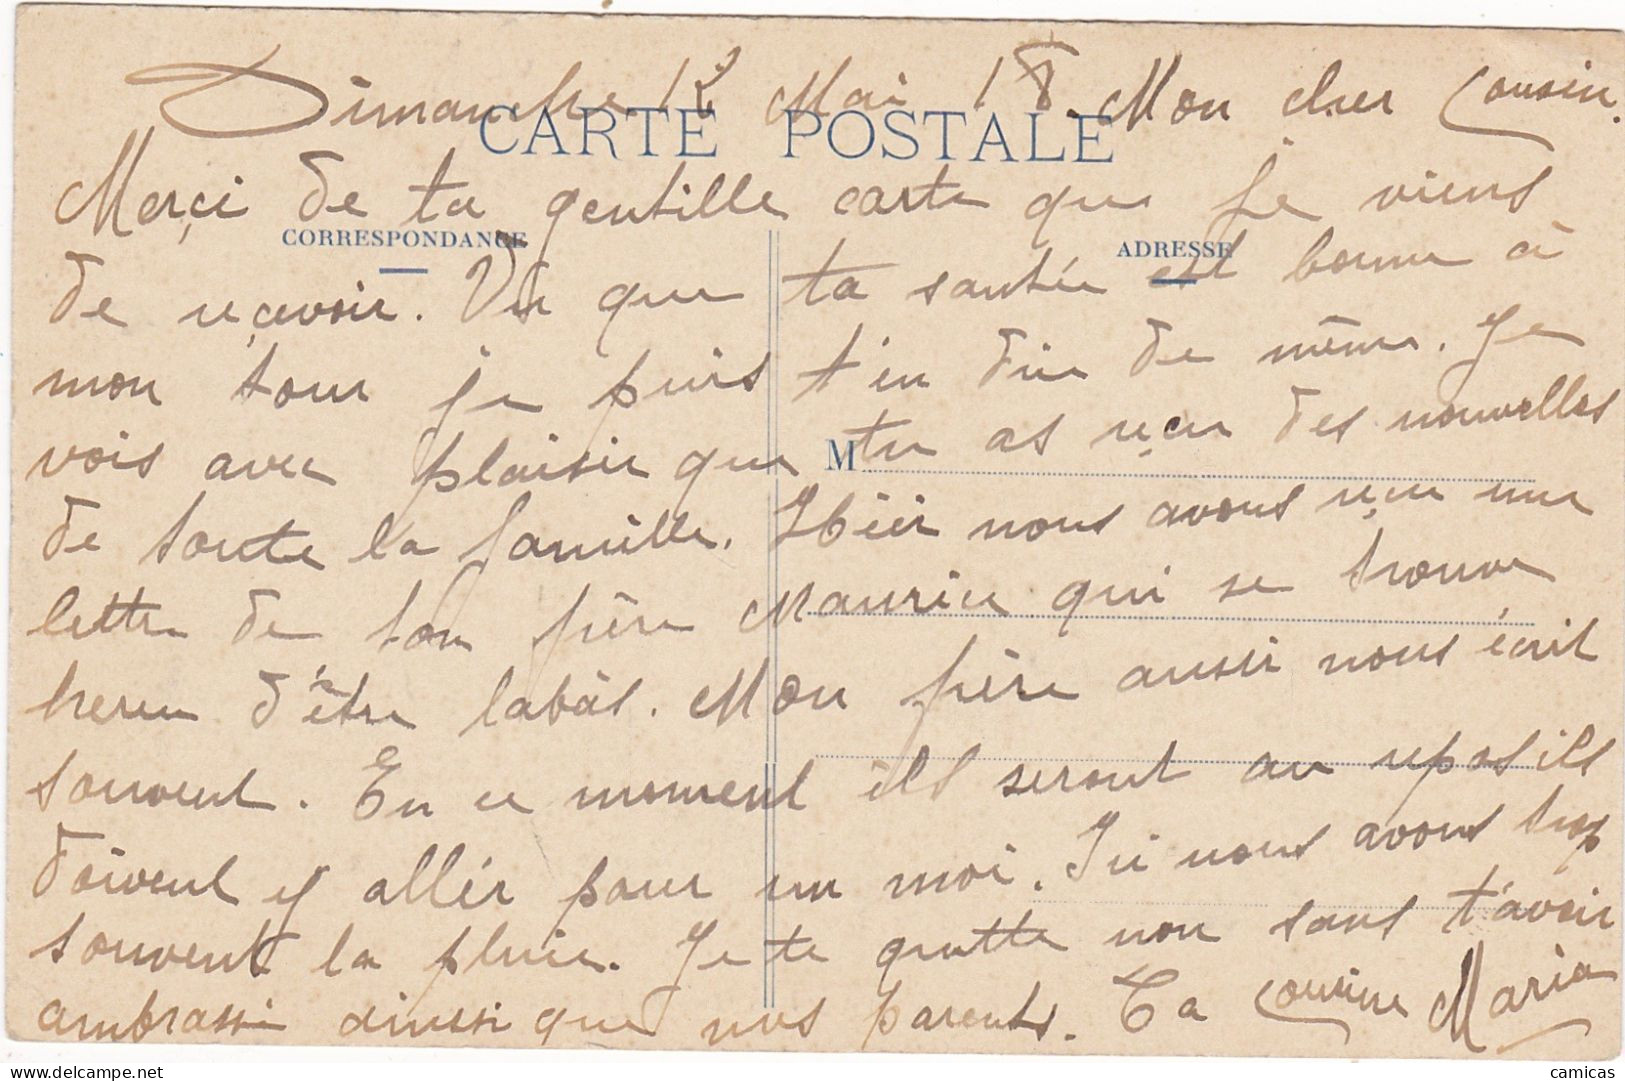 Dimanche 12 Mai 18. Mon cher Cousin.
CARTE POSTALE
Merçi de ta gentille carte que je viens
CORRESPONDANCE
ADRESSE
de reçevoir. Vu que ta santée est bonne à
mon tour je puis t'en dire de même. Je
vois avec plaisir que tu as reçu des nouvelles
M
de toute la famille. Hièr nous avons reçu une
lettre de ton frère Maurice qui se trouve
hereu d'être labàs. Mon frère aussi nous écrit
souvent. En ce moment ils seront au repos ils
doivent y allér pour un moi. Ici nous avons trop
souvent la pluie. Je te quitte non sans t'avoir
ambrassé ainssi que nos parents. Ta Cousine Maria
delcampe.net
camicas